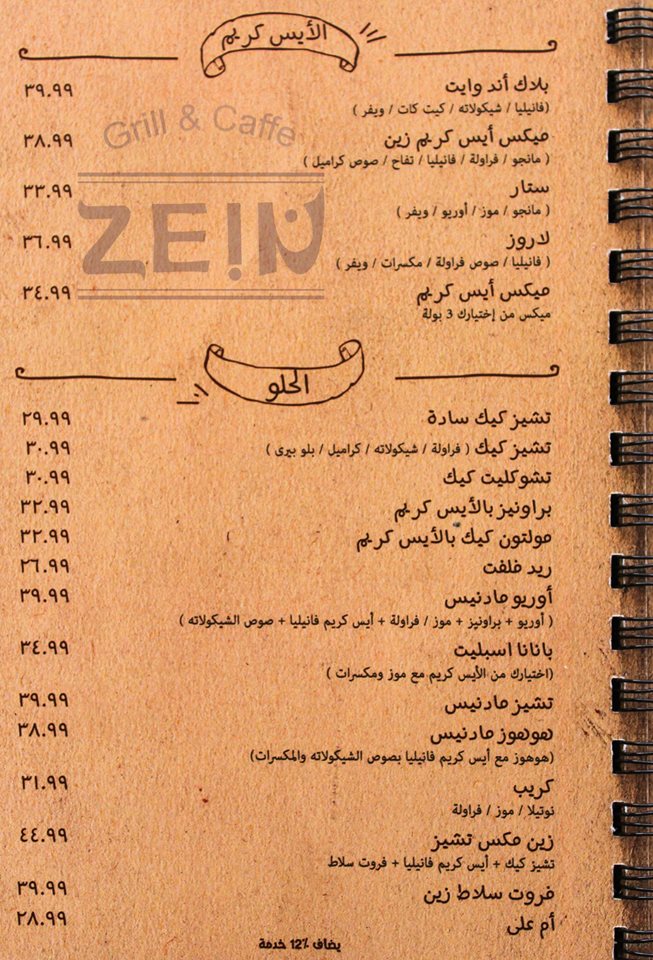 الأيس كريم
بلاك أند وايت ٣٩.٩٩
(فانيليا / شيكولاته / كيت كات / ويفر )
ميكس أيس كريم زين ٣٨.٩٩
( مانجو / فراولة / فانيليا / تفاح / صوص كراميل )
ستار ٣٣.٩٩
( مانجو / موز / أوريو / ويفر )
لاروز ٣٦.٩٩
( فانيليا / صوص فراولة / مكسرات / ويفر )
ميكس أيس كريم ٣٤.٩٩
ميكس من إختيارك 3 بولة
Grill & Caffe
ZEIN
الحلو
تشيز كيك سادة ٢٩.٩٩
تشيز كيك ( فراولة / شيكولاته / كراميل / بلو بيرى ) ٣٠.٩٩
تشوكليت كيك ٣٠.٩٩
براونيز بالأيس كريم ٣٢.٩٩
مولتون كيك بالأيس كريم ٣٢.٩٩
ريد فلفت ٢٦.٩٩
أوريو مادنيس ٣٩.٩٩
( أوريو + براونيز + موز / فراولة + أيس كريم فانيليا + صوص الشيكولاته )
بانانا اسبليت ٣٤.٩٩
(اختيارك من الأيس كريم مع موز ومكسرات )
تشيز مادنيس ٣٩.٩٩
هوهوز مادنيس ٣٨.٩٩
(هوهوز مع أيس كريم فانيليا بصوص الشيكولاته والمكسرات)
كريب ٣١.٩٩
نوتيلا / موز / فراولة
زين مكس تشيز ٤٤.٩٩
تشيز كيك + أيس كريم فانيليا + فروت سلاط
فروت سلاط زين ٣٩.٩٩
أم على ٢٨.٩٩
يضاف 12٪ خدمة